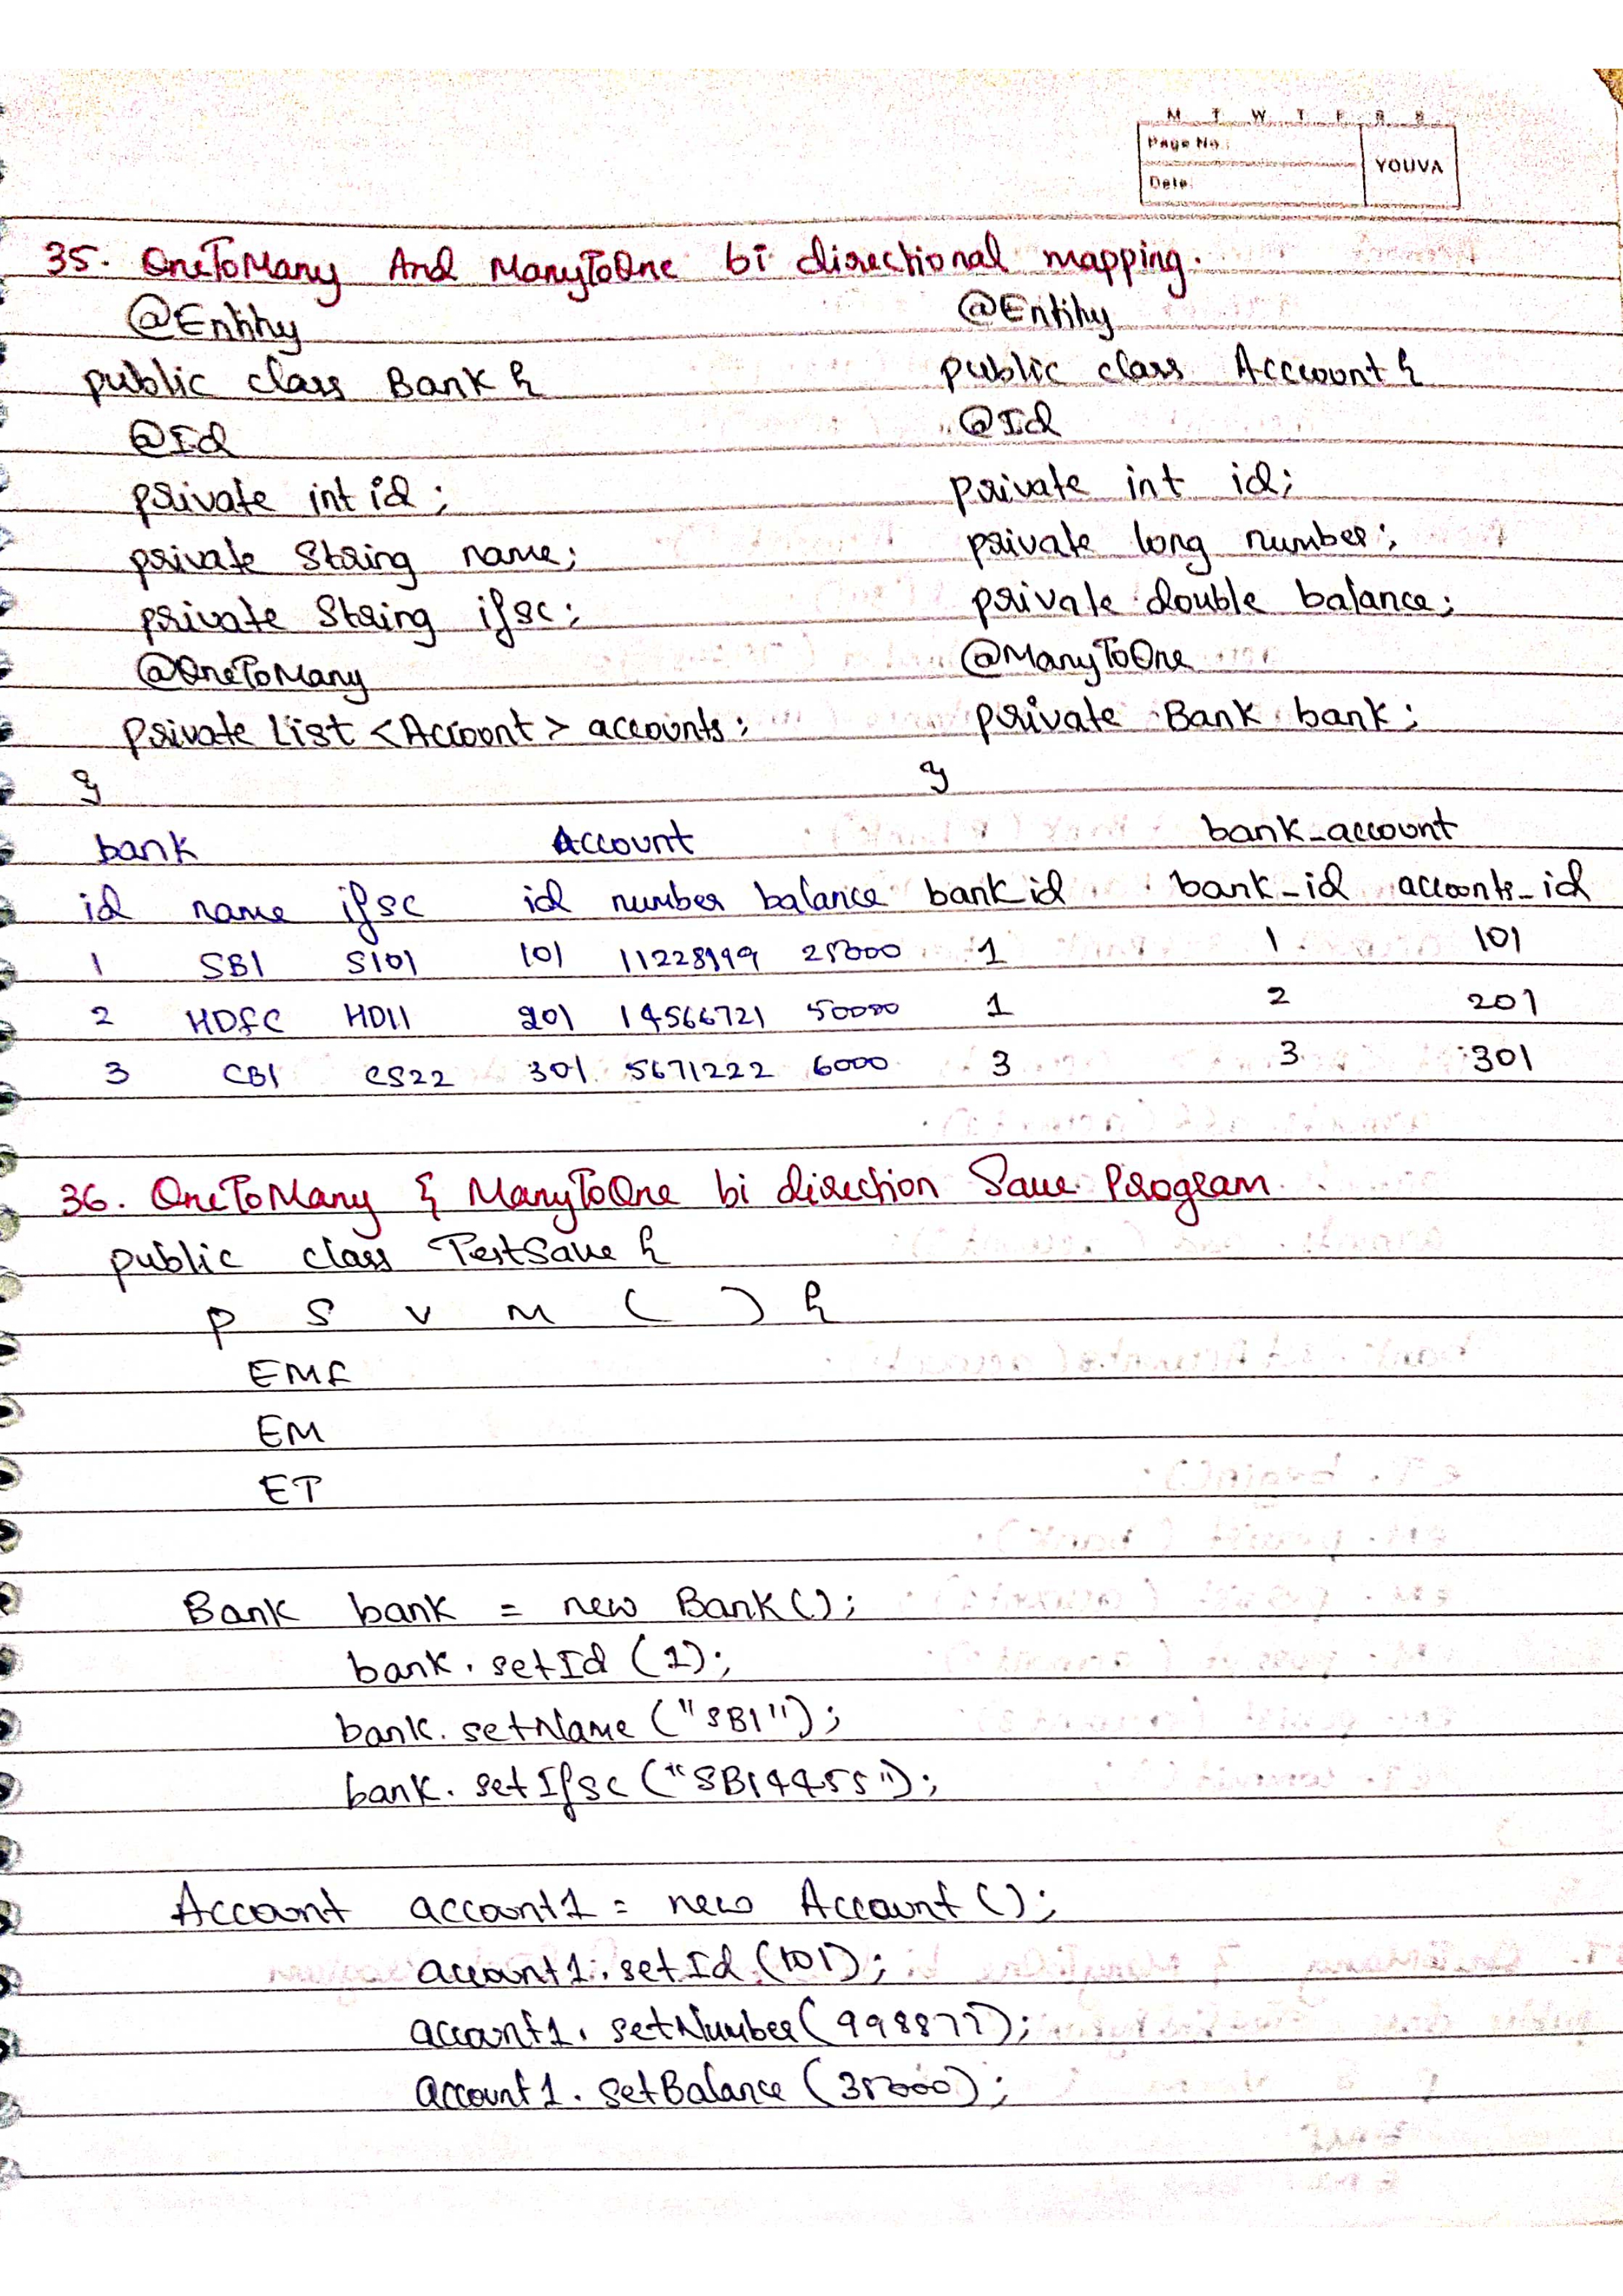 M T W T F S S
Page No.:
YOUVA
Date:
35. OneToMany And ManyToOne bi directional mapping.
@Entity
public class Bank {
@Id
private int id;
private String name;
private String ifsc;
@OneToMany
private List <Account> accounts;
}
@Entity
public class Account {
@Id
private int id;
private long number;
private double balance;
@ManyToOne
private Bank bank;
}
bank
id name ifsc
1 SBI S101
2 HDFC HD11
3 CBI CS22
Account
id number balance bank id
101 25000 1
201 14566721 50000 1
301 5671222 6000 3
bank_account
bank_id accounts_id
1 101
2 201
3 301
36. OneToMany & ManyToOne bi direction Save Program
public class TestSave {
p s v m ( ) {
EMF
EM
ET
Bank bank = new Bank();
bank.setId(1);
bank.setName("SBI");
bank.setIfsc("SBI4455");
Account account1 = new Account();
account1.setId(101);
account1.setNumber(998877);
account1.setBalance(35000);